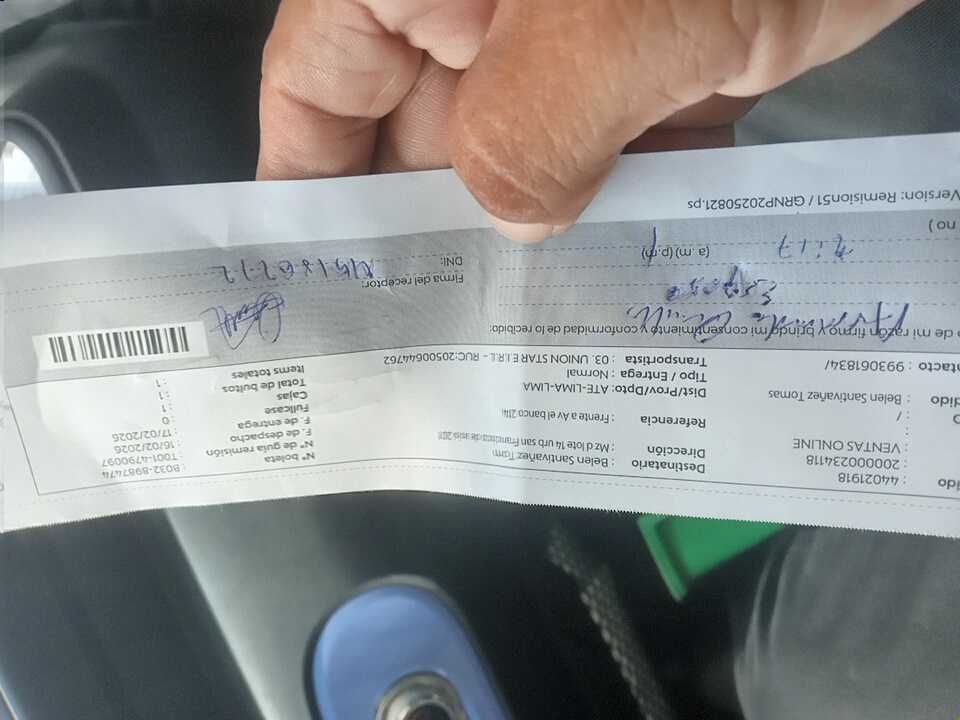 dido : 44021918
: 200000234118
: VENTAS ONLINE
: /
dido : Belen Santivañez Tomas
ntacto : 993061834/
Destinatario : Belen Santivañez Tom
Dirección : Mz d lote 14 urb san francisco de asis
Referencia : Frente a Av el banco
Dist/Prov/Dpto : ATE-LIMA-LIMA
Tipo / Entrega : Normal
Transportista : 03. UNION STAR E.I.R.L - RUC:20500644762
N° boleta : B032-8987474
N° de guía remisión : T001-4790097
F. de despacho : 16/02/2026
F. de entrega : 17/02/2026
Fullcase : 0
Cajas : 1
Total de bultos : 1
Items totales : 1
o de mi razón firmo y brindo mi consentimiento y conformidad de lo recibido:
Esposo
(a.m) (p.m)
Firma del receptor:
DNI:
no )
Version: Remision51 / GRNP20250821.ps